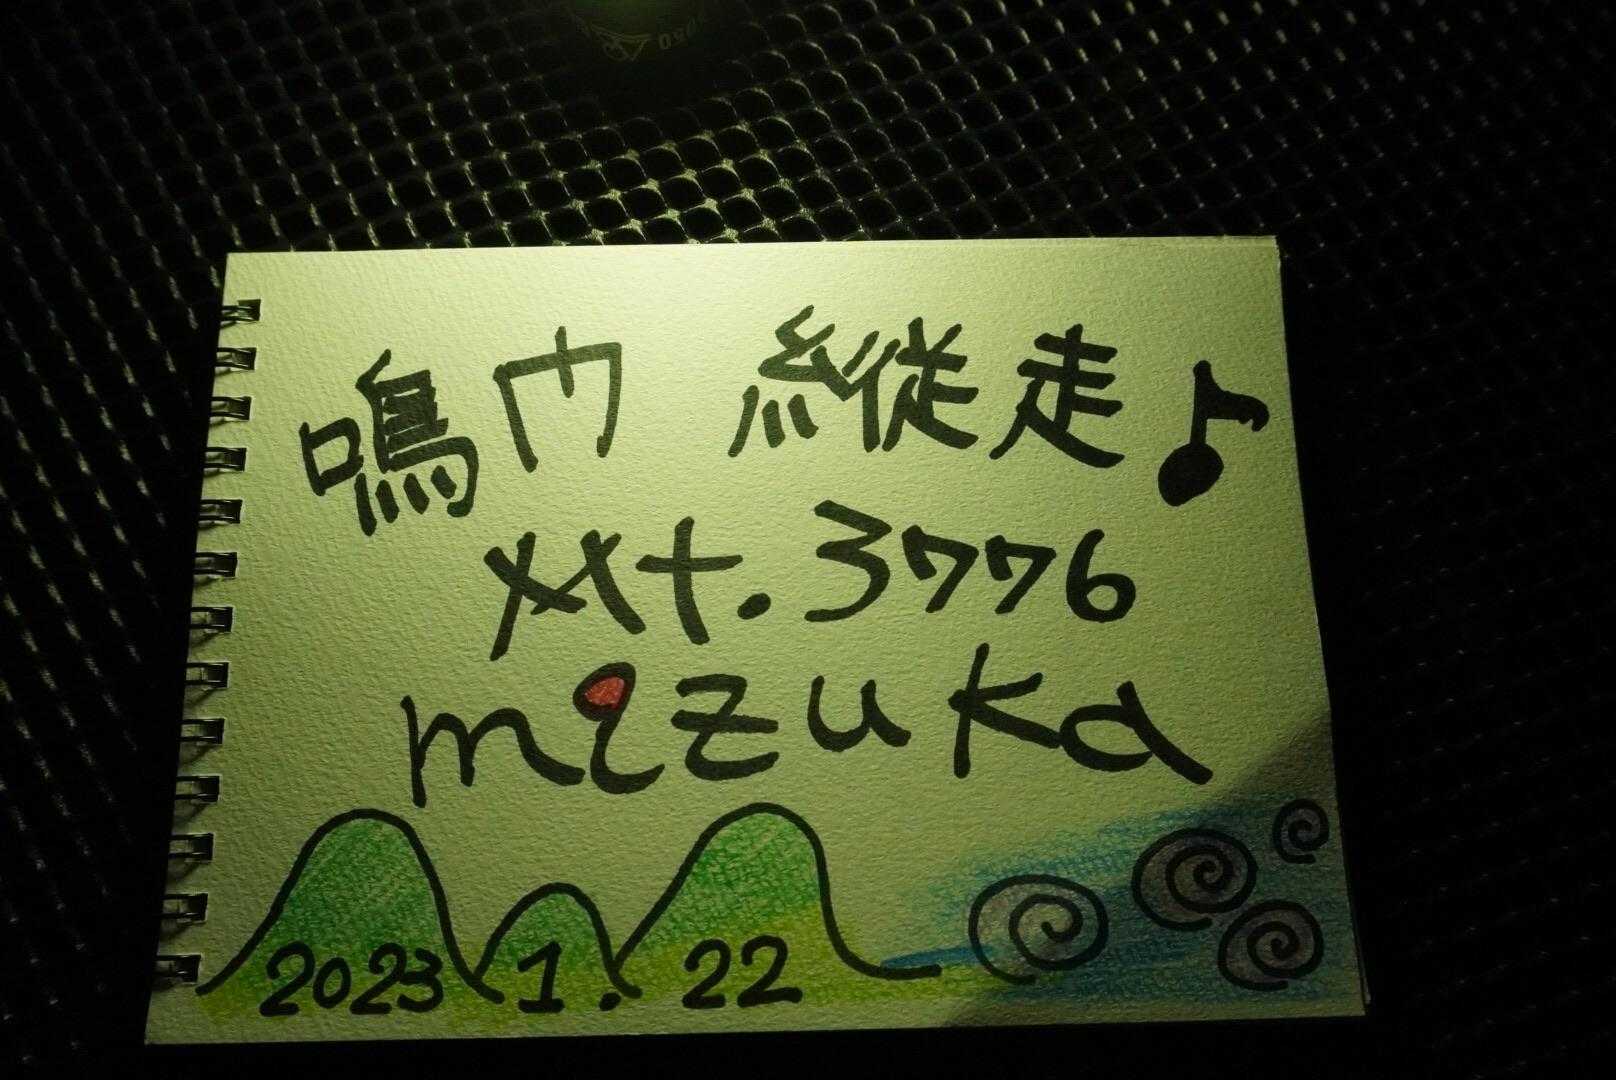 鳴门 縦走♪
Mt. 3776
mizuka
2023 1. 22